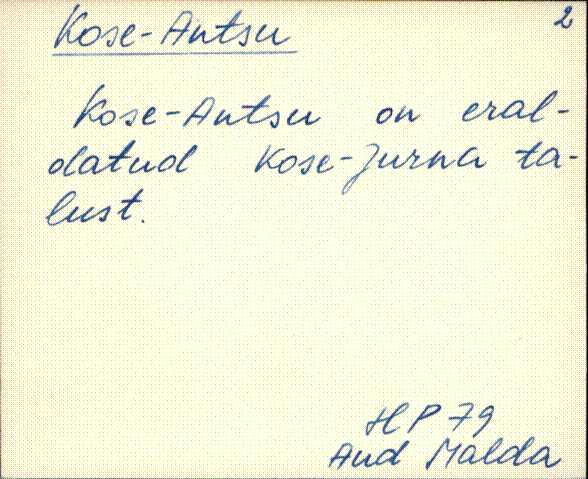 2
Kose-Antsu
Kose-Antsu on eral-
datud Kose-Jurna ta-
lust.
HP 79
And Malda